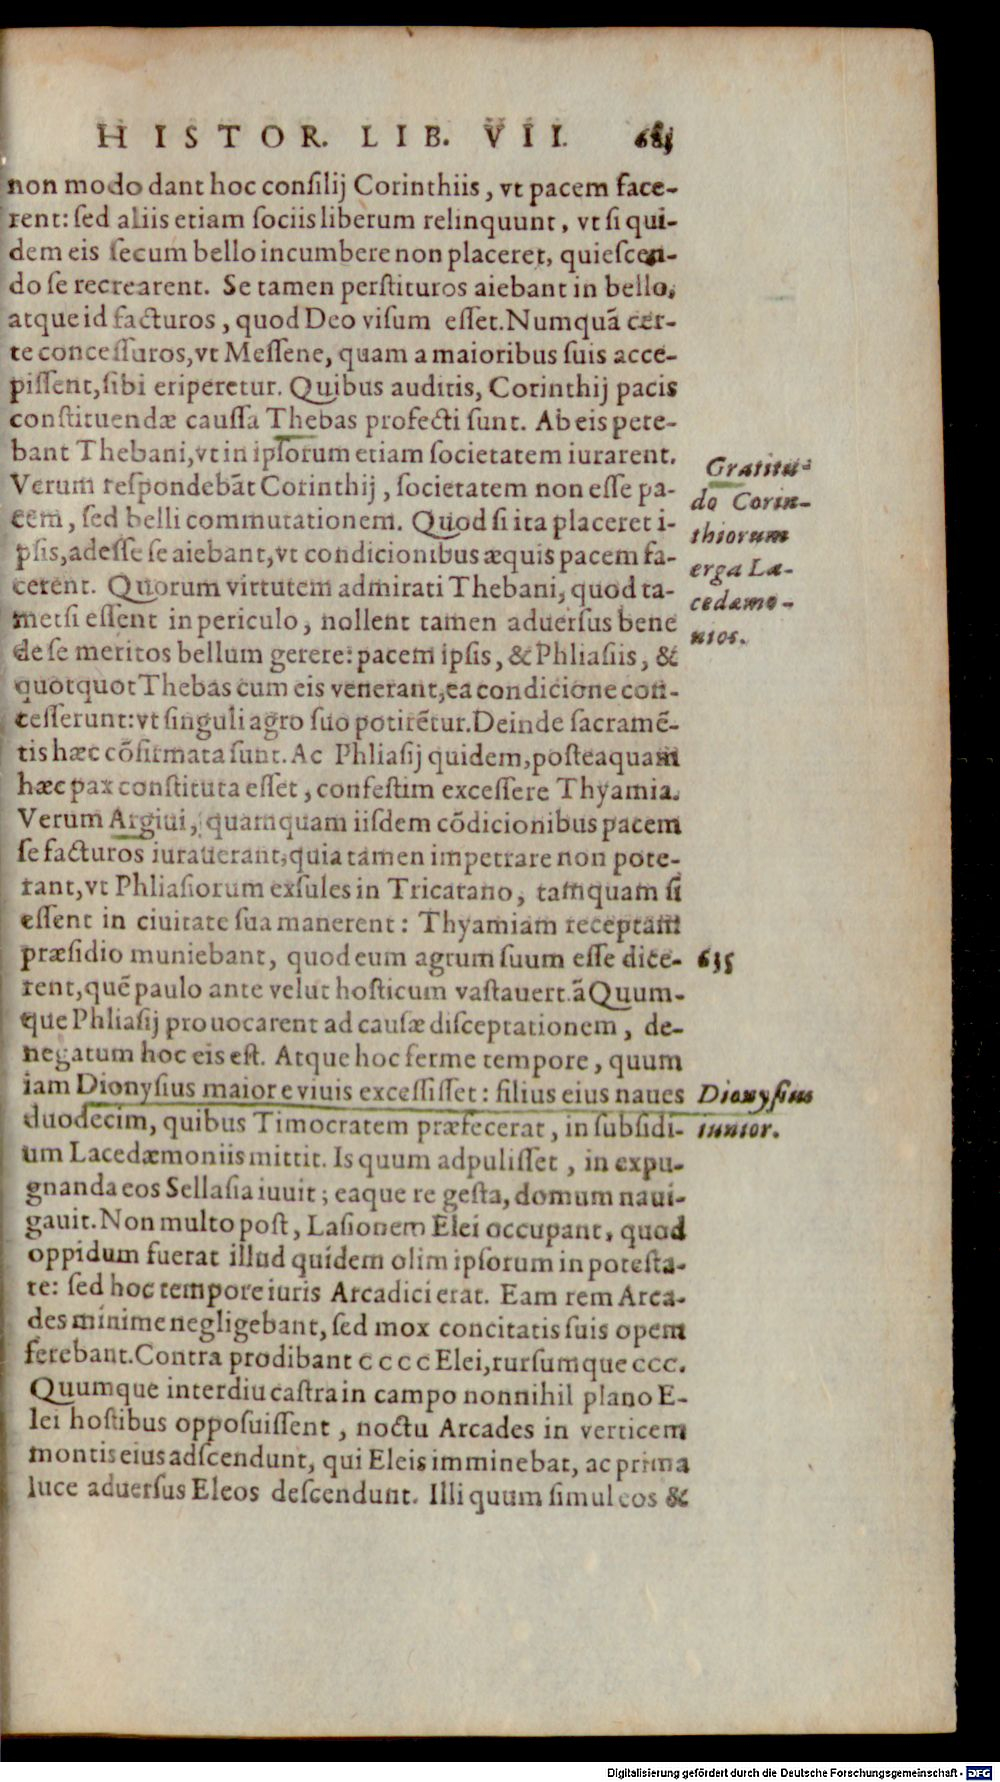 HISTOR. LIB. VII. 685
non modo dant hoc consilij Corinthiis, vt pacem face-
rent: sed aliis etiam sociis liberum relinquunt, vt si qui-
dem eis secum bello incumbere non placeret, quiescen-
do se recrearent. Se tamen perstituros aiebant in bello,
atque id facturos, quod Deo visum esset. Numquā cer-
te concessuros, vt Messene, quam a maioribus suis acce-
pissent, sibi eriperetur. Quibus auditis, Corinthij pacis
constituendæ caussa Thebas profecti sunt. Ab eis pete-
bant Thebani, vt in ipsorum etiam societatem iurarent.
Verum respondebāt Corinthij, societatem non esse pa-
cem, sed belli commutationem. Quod si ita placeret i-
psis, adesse se aiebant, vt condicionibus æquis pacem fa-
cerent. Quorum virtutem admirati Thebani, quod ta-
metsi essent in periculo, nollent tamen aduersus bene
de se meritos bellum gerere: pacem ipsis, & Phliasiis, &
quotquot Thebas cum eis venerant, ea condicione con-
cesserunt: vt singuli agro suo potirētur. Deinde sacramē-
tis hæc cōfirmata sunt. Ac Phliasij quidem, posteaquam
hæc pax constituta esset, confestim excessere Thyamia.
Verum Argiui, quamquam iisdem cōdicionibus pacem
se facturos iurauerant, quia tamen impetrare non pote-
rant, vt Phliasiorum exsules in Tricatano, tamquam si
essent in ciuitate sua manerent: Thyamiam receptam
præsidio muniebant, quod eum agrum suum esse dice-
rent, quē paulo ante velut hosticum vastauert.ā Quum-
que Phliasij prouocarent ad causæ disceptationem, de-
negatum hoc eis est. Atque hoc ferme tempore, quum
iam Dionysius maior e viuis excessisset: filius eius naues
duodecim, quibus Timocratem præfecerat, in subsidi-
um Lacedæmoniis mittit. Is quum adpulisset, in expu-
gnanda eos Sellasia iuuit; eaque re gesta, domum naui-
gauit. Non multo post, Lasionem Elei occupant, quod
oppidum fuerat illud quidem olim ipsorum in potesta-
te: sed hoc tempore iuris Arcadici erat. Eam rem Arca-
des minime negligebant, sed mox concitatis suis opem
ferebant. Contra prodibant cccc Elei, rursumque ccc.
Quumque interdiu castra in campo nonnihil plano E-
lei hostibus opposuissent, noctu Arcades in verticem
montis eius adscendunt, qui Eleis imminebat, ac prima
luce aduersus Eleos descendunt. Illi quum simul eos &
Gratitu-
do Corin-
thiorum
erga La-
cedæmo-
nios.
635
Dionysius
iunior.
Digitalisierung gefördert durch die Deutsche Forschungsgemeinschaft - DFG